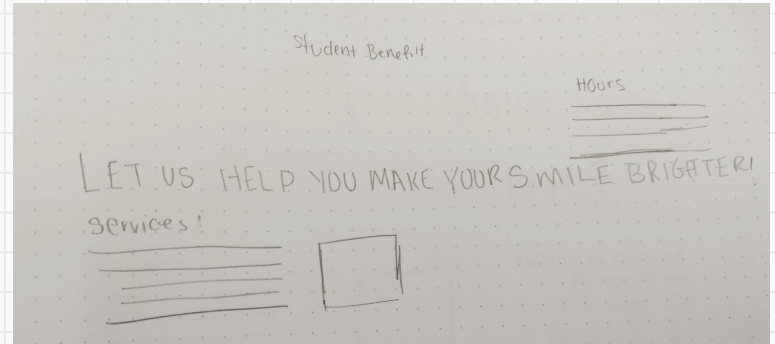 Student Benefit
Hours
LET US HELP YOU MAKE YOUR SMILE BRIGHTER!
Services!